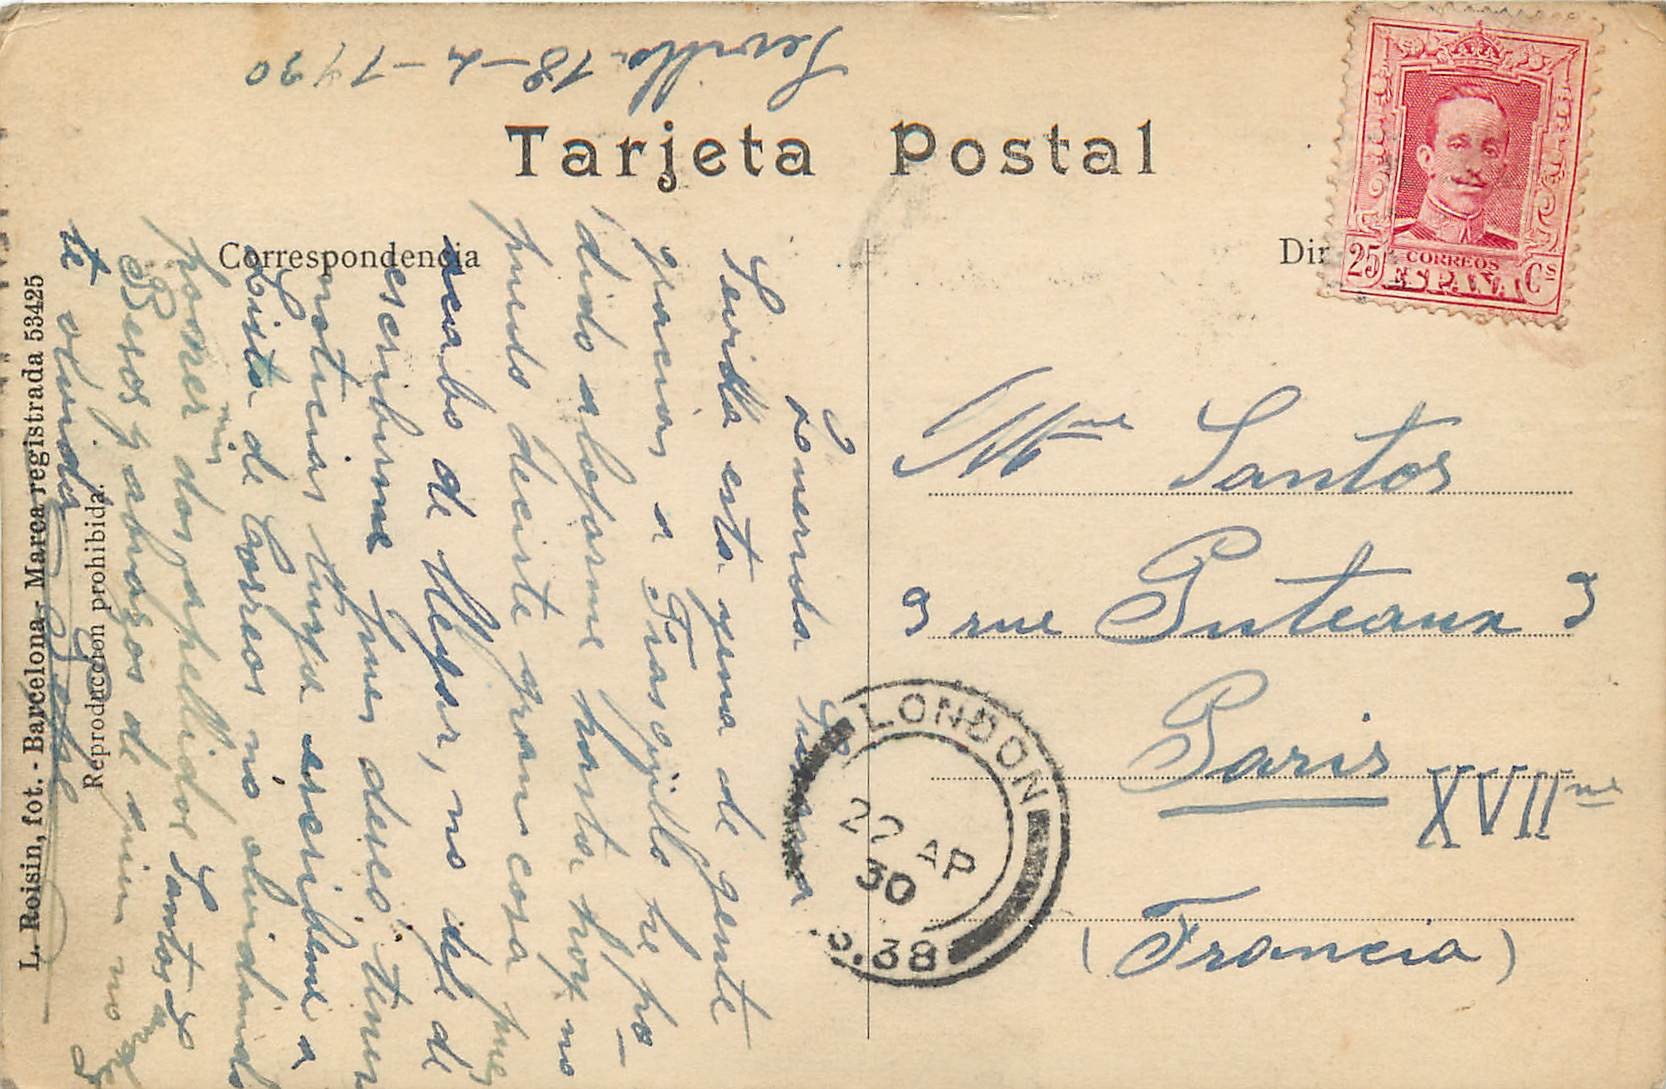 Sevilla 18-4-1930
Tarjeta Postal
Correspondencia
Dir
25 CORREOS Cs
ESPAÑA
Querida
Sevilla esta llena de gente
gracias a Frasquito he po-
dido alojarme hasta hoy no
puedo decirte gran cosa pues
acabo de llegar, no deje de
escribirme pues deseo tener
noticias tuyas escribeme a
Lista de Correos no olvidando
poner mis dos apellidos Santos
Besos y abrazos de quien no
te olvida
Mme Santos
9 rue Puteaux 9
Paris XVIIme
(Francia)
LONDON
AP
30
.38
L. Roisin, fot. - Barcelona - Marca registrada 53425
Reproducción prohibida.